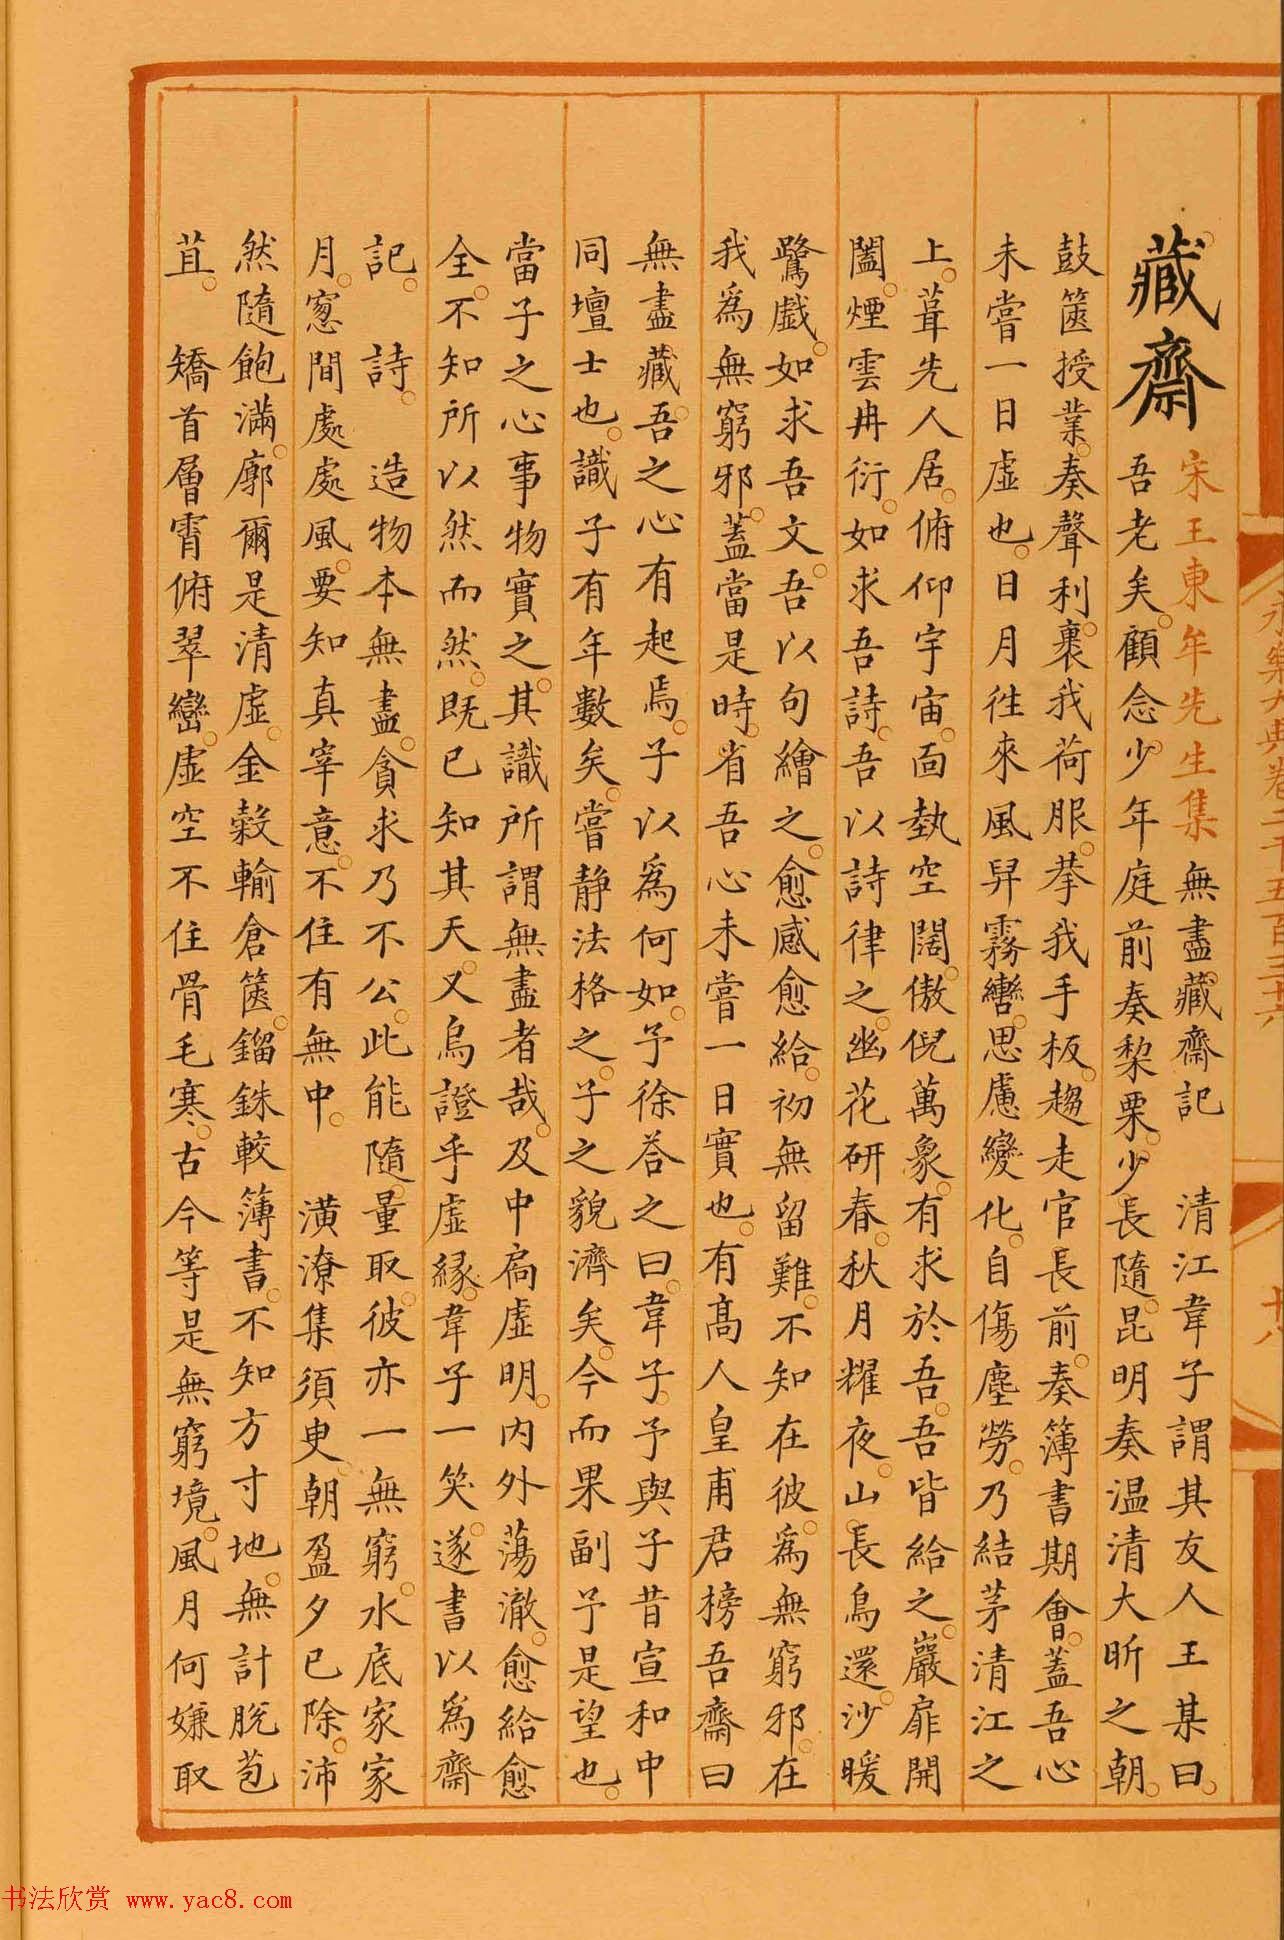 永樂大典卷二千五百三十六
十八
藏齋
宋王東牟先生集無盡藏齋記 清江韋子謂其友人王某曰
吾老矣顧念少年庭前奏棃栗少長隨昆明奏温清大昕之朝
鼓篋授業奏聲利裹我荷服拳我手板趨走官長前奏簿書期會蓋吾心
未嘗一日虛也日月徃來風舁霧轡思慮變化自傷塵勞乃結茅清江之
上葺先人居俯仰宇宙面埶空闊傲倪萬象有求於吾吾皆給之巖扉開
闔煙雲冉衍如求吾詩吾以詩律之幽花研春秋月耀夜山長鳥還沙暖
鷺戲如求吾文吾以句繪之愈感愈給初無留難不知在彼爲無窮邪在
我爲無窮邪蓋當是時省吾心未嘗一日實也有髙人皇甫君榜吾齋曰
無盡藏吾之心有起焉子以爲何如予徐荅之曰韋子予與子昔宣和中
同壇士也識子有年數矣嘗静法格之子之貌濟矣今而果副予是望也
當子之心事物實之其識所謂無盡者哉及中扄虛明内外蕩澈愈給愈
全不知所以然而然既已知其天又烏證乎虛緣韋子一笑遂書以爲齋
記 詩 造物本無盡貪求乃不公此能隨量取彼亦一無窮水底家家
月窻間處處風要知真宰意不住有無中 潢潦集須臾朝盈夕已除沛
然隨飽滿廓爾是清虛金榖輸倉篋錙銖較簿書不知方寸地無計脱苞
苴 矯首層霄俯翠巒虛空不住骨毛寒古今等是無窮境風月何嫌取
书法欣赏 www.yac8.com